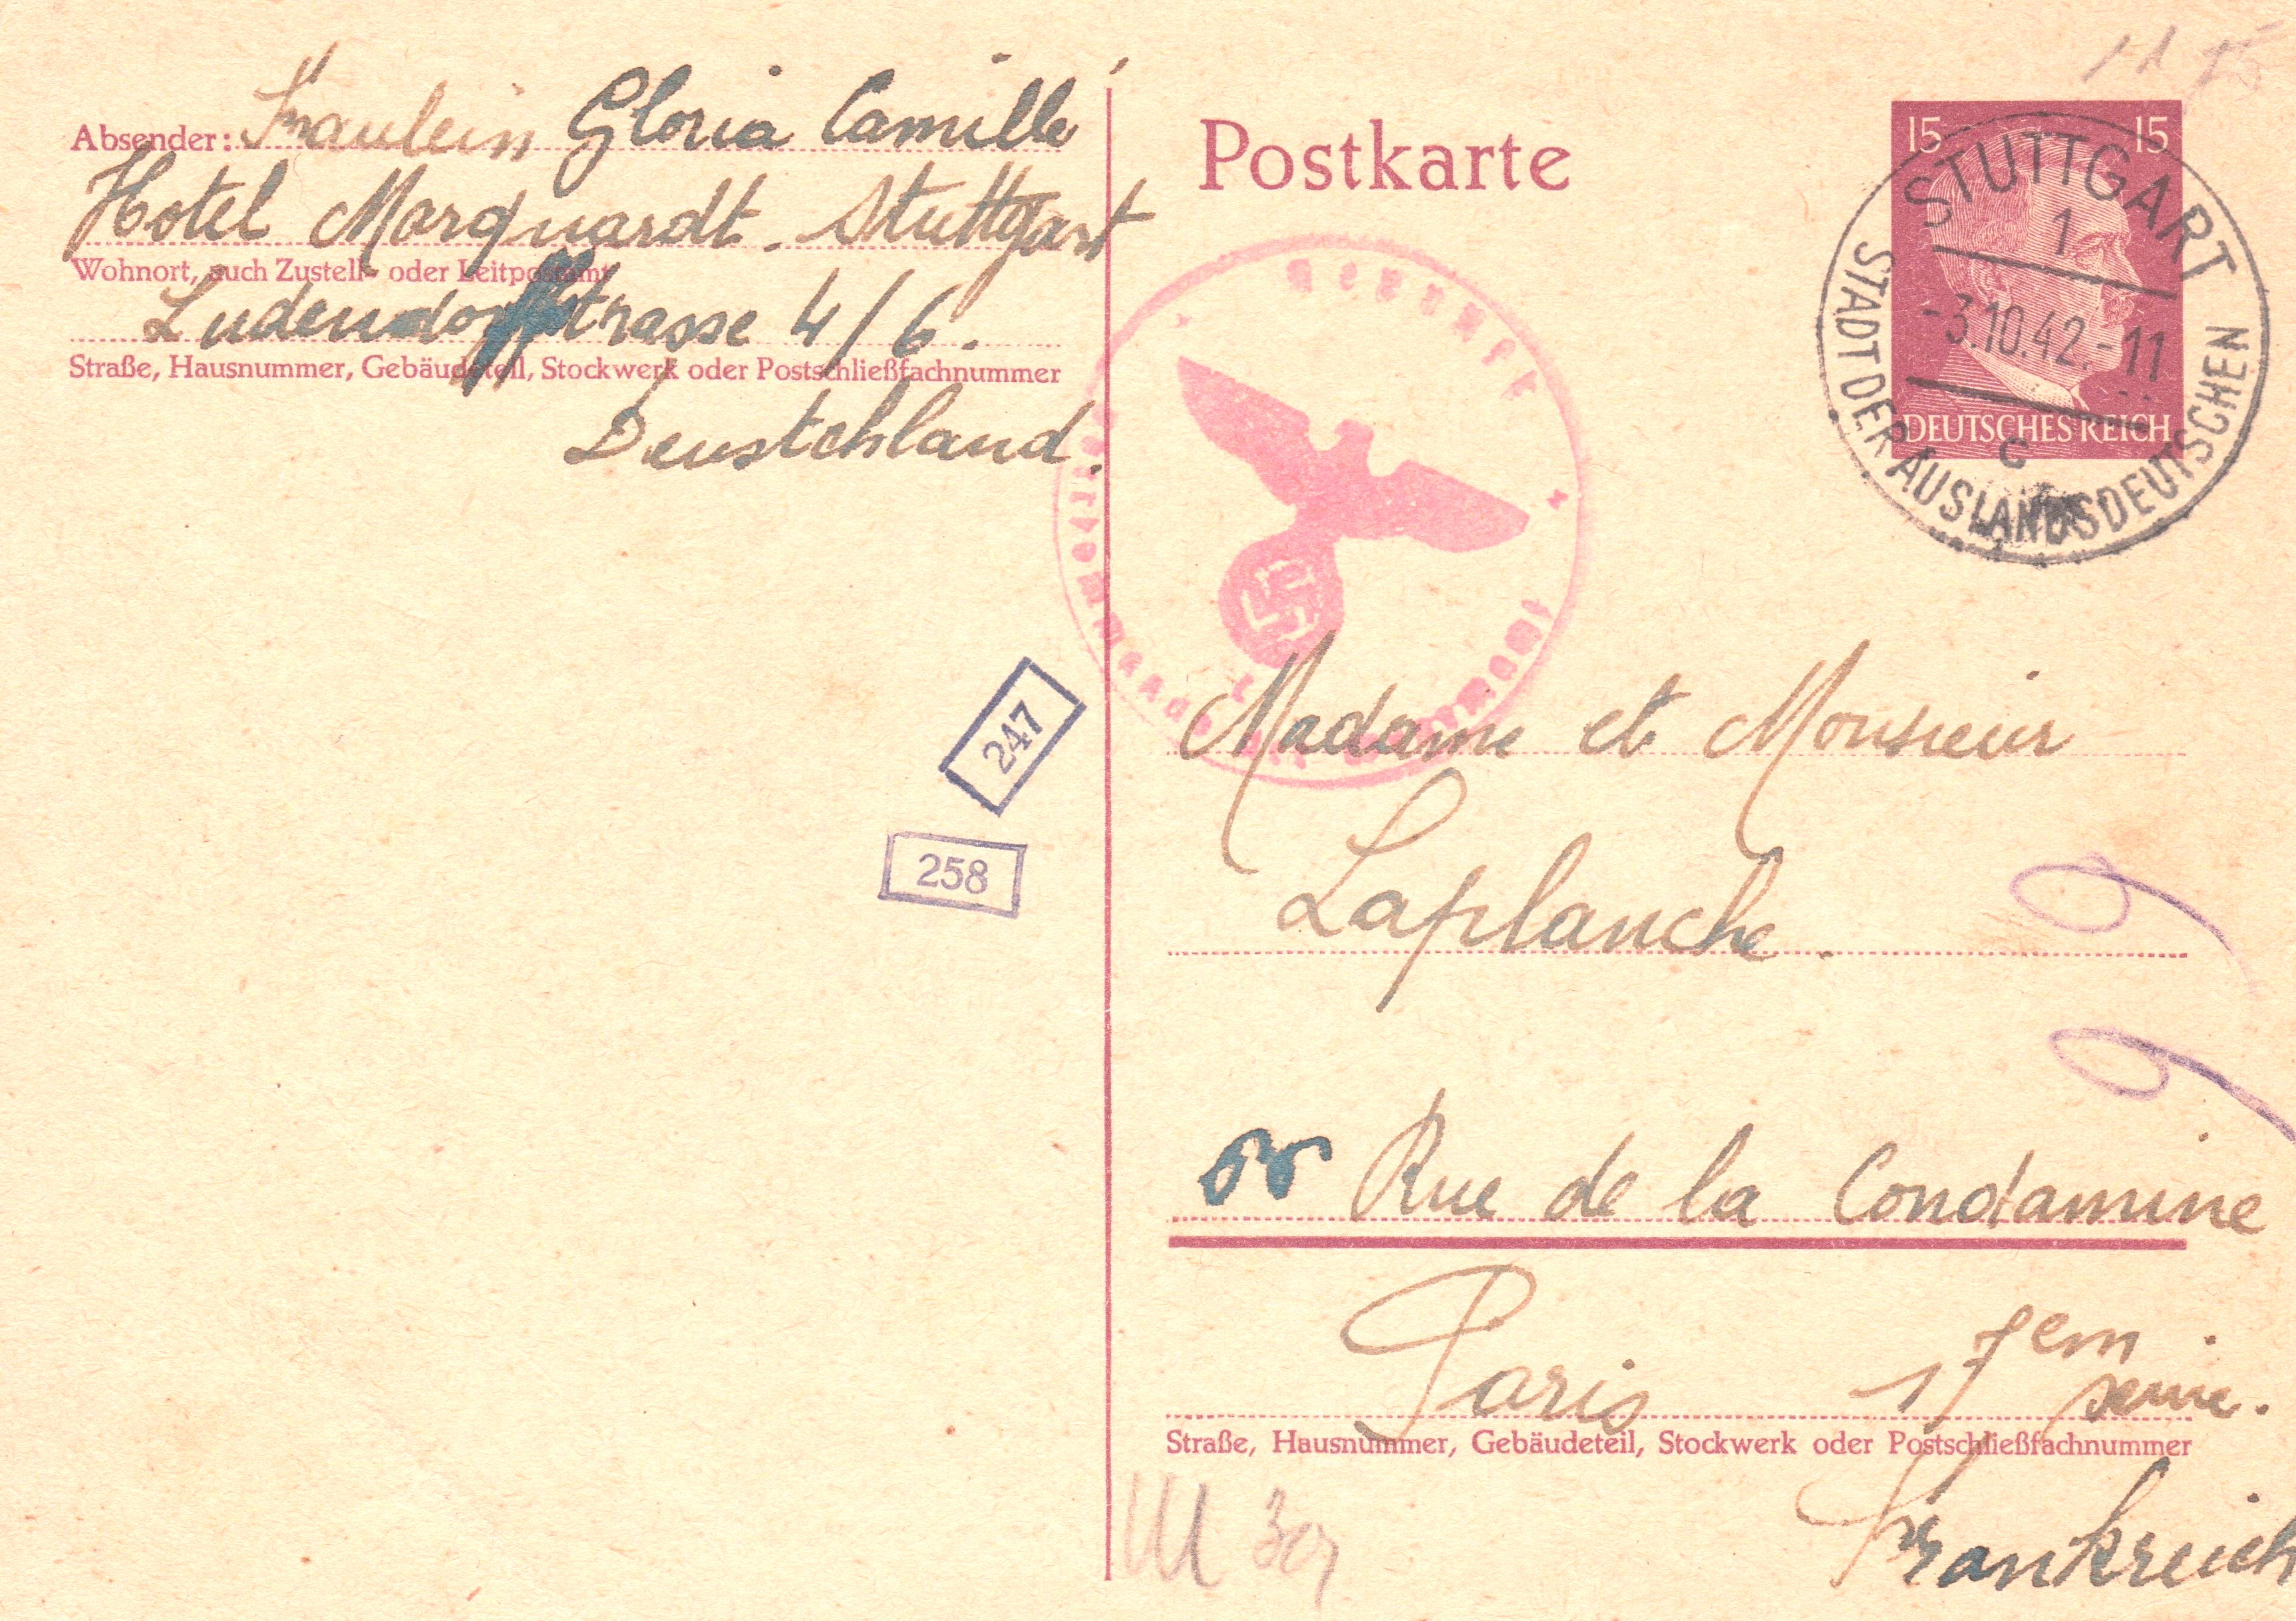 Absender: Fräulein Gloria Camille
Hotel Marquardt. Stuttgart
Wohnort, auch Zustell- oder Leitpostamt
Ludendorffstrasse 4/6.
Straße, Hausnummer, Gebäudeteil, Stockwerk oder Postschließfachnummer
Deustchland.
Postkarte
15 15
DEUTSCHES REICH
STUTTGART
1
-3.10.42.-11
c
STADT DER AUSLANDSDEUTSCHEN
247
258
Madame et Monsieur
Laplanche.
Rue de la Condamine
Paris 17em
seine.
Straße, Hausnummer, Gebäudeteil, Stockwerk oder Postschließfachnummer
Frankreich